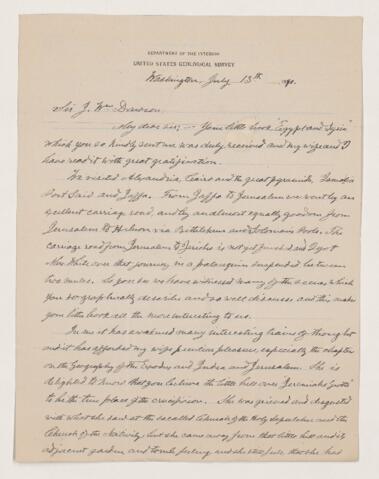 DEPARTMENT OF THE INTERIOR
UNITED STATES GEOLOGICAL SURVEY
Washington, July 13th 90.
Sir J. Wm Dawson.
My dear sir; — Your little book "Egypt and Syria"
which you so kindly sent me was duly received and my wife and I
have read it with great gratification.
We visited Alexandria, Cairo and the great pyramids,
Port Said and Jaffa. From Jaffa to Jerusalem we went by an
excellent carriage road, and by an almost equally good one from
Jerusalem to Hebron via Bethlehem and Solomons Pools. The
carriage road from Jerusalem to Jericho is not yet finished and I got
Mrs White over that journey in a palanquin suspended between
two mules. So you see we have witnessed many of the scenes which
you so graphically describe and so well discuss and this makes
your little book all the more interesting to us.
In me it has awakened many interesting trains of thought
and it has afforded my wife positive pleasure, especially the chapter
on the Geography of the Exodus and Judea and Jerusalem. She is
delighted to know that you believe the little hill over Jeremiahs Grotto
to be the true place of the crucifixion. She was grieved and disgusted
with what she saw at the socalled Church of the Holy Sepulchre and the
Church of the Nativity, but she came away from that little hill and its
adjacent garden and tomb feeling and she still feels that she had